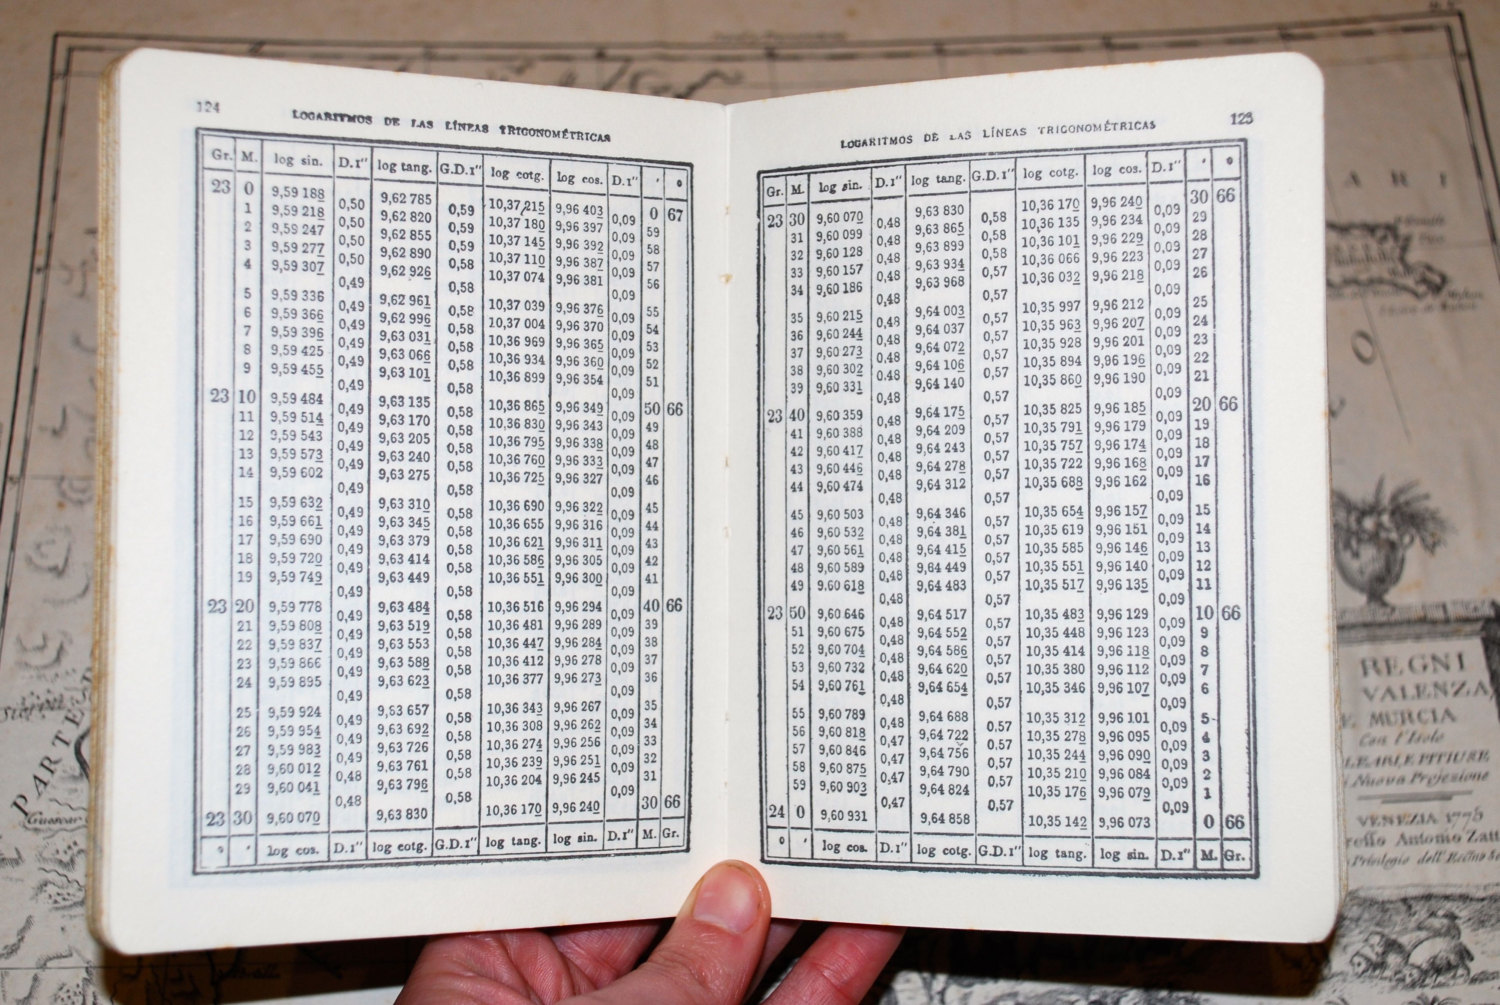 124
LOGARITMOS DE LAS LÍNEAS TRIGONOMÉTRICAS
Gr. M. log sin. D.1" log tang. G.D.1" log cotg. log cos. D.1" ' °
23 0 9,59 188 9,62 785 10,37 215 9,96 403 0 67
1 9,59 218 0,50 9,62 820 0,59 10,37 180 9,96 397 0,09 59
2 9,59 247 0,50 9,62 855 0,59 10,37 145 9,96 392 0,09 58
3 9,59 277 0,50 9,62 890 0,59 10,37 110 9,96 387 0,09 57
4 9,59 307 0,50 9,62 926 0,58 10,37 074 9,96 381 0,09 56
5 9,59 336 0,49 9,62 961 0,58 10,37 039 9,96 376 0,09 55
6 9,59 366 0,49 9,62 996 0,58 10,37 004 9,96 370 0,09 54
7 9,59 396 0,49 9,63 031 0,58 10,36 969 9,96 365 0,09 53
8 9,59 425 0,49 9,63 066 0,58 10,36 934 9,96 360 0,09 52
9 9,59 455 0,49 9,63 101 0,58 10,36 899 9,96 354 0,09 51
23 10 9,59 484 0,49 9,63 135 0,58 10,36 865 9,96 349 0,09 50 66
11 9,59 514 0,49 9,63 170 0,58 10,36 830 9,96 343 0,09 49
12 9,59 543 0,49 9,63 205 0,58 10,36 795 9,96 338 0,09 48
13 9,59 573 0,49 9,63 240 0,58 10,36 760 9,96 333 0,09 47
14 9,59 602 0,49 9,63 275 0,58 10,36 725 9,96 327 0,09 46
15 9,59 632 0,49 9,63 310 0,58 10,36 690 9,96 322 0,09 45
16 9,59 661 0,49 9,63 345 0,58 10,36 655 9,96 316 0,09 44
17 9,59 690 0,49 9,63 379 0,58 10,36 621 9,96 311 0,09 43
18 9,59 720 0,49 9,63 414 0,58 10,36 586 9,96 305 0,09 42
19 9,59 749 0,49 9,63 449 0,58 10,36 551 9,96 300 0,09 41
23 20 9,59 778 0,49 9,63 484 0,58 10,36 516 9,96 294 0,09 40 66
21 9,59 808 0,49 9,63 519 0,58 10,36 481 9,96 289 0,09 39
22 9,59 837 0,49 9,63 553 0,58 10,36 447 9,96 284 0,09 38
23 9,59 866 0,49 9,63 588 0,58 10,36 412 9,96 278 0,09 37
24 9,59 895 0,49 9,63 623 0,58 10,36 377 9,96 273 0,09 36
25 9,59 924 0,49 9,63 657 0,58 10,36 343 9,96 267 0,09 35
26 9,59 954 0,49 9,63 692 0,58 10,36 308 9,96 262 0,09 34
27 9,59 983 0,49 9,63 726 0,58 10,36 274 9,96 256 0,09 33
28 9,60 012 0,49 9,63 761 0,58 10,36 239 9,96 251 0,09 32
29 9,60 041 0,48 9,63 796 0,58 10,36 204 9,96 245 0,09 31
23 30 9,60 070 0,48 9,63 830 0,58 10,36 170 9,96 240 0,09 30 66
° ' log cos. D.1" log cotg. G.D.1" log tang. log sin. D.1" M. Gr.
125
LOGARITMOS DE LAS LÍNEAS TRIGONOMÉTRICAS
Gr. M. log sin. D.1" log tang. G.D.1" log cotg. log cos. D.1" ' °
23 30 9,60 070 9,63 830 10,36 170 9,96 240 30 66
31 9,60 099 0,48 9,63 865 0,58 10,36 135 9,96 234 0,09 29
32 9,60 128 0,48 9,63 899 0,58 10,36 101 9,96 229 0,09 28
33 9,60 157 0,48 9,63 934 0,58 10,36 066 9,96 223 0,09 27
34 9,60 186 0,48 9,63 968 0,57 10,36 032 9,96 218 0,09 26
35 9,60 215 0,48 9,64 003 0,57 10,35 997 9,96 212 0,09 25
36 9,60 244 0,48 9,64 037 0,57 10,35 963 9,96 207 0,09 24
37 9,60 273 0,48 9,64 072 0,57 10,35 928 9,96 201 0,09 23
38 9,60 302 0,48 9,64 106 0,57 10,35 894 9,96 196 0,09 22
39 9,60 331 0,48 9,64 140 0,57 10,35 860 9,96 190 0,09 21
23 40 9,60 359 0,48 9,64 175 0,57 10,35 825 9,96 185 0,09 20 66
41 9,60 388 0,48 9,64 209 0,57 10,35 791 9,96 179 0,09 19
42 9,60 417 0,48 9,64 243 0,57 10,35 757 9,96 174 0,09 18
43 9,60 446 0,48 9,64 278 0,57 10,35 722 9,96 168 0,09 17
44 9,60 474 0,48 9,64 312 0,57 10,35 688 9,96 162 0,09 16
45 9,60 503 0,48 9,64 346 0,57 10,35 654 9,96 157 0,09 15
46 9,60 532 0,48 9,64 381 0,57 10,35 619 9,96 151 0,09 14
47 9,60 561 0,48 9,64 415 0,57 10,35 585 9,96 146 0,09 13
48 9,60 589 0,48 9,64 449 0,57 10,35 551 9,96 140 0,09 12
49 9,60 618 0,48 9,64 483 0,57 10,35 517 9,96 135 0,09 11
23 50 9,60 646 0,48 9,64 517 0,57 10,35 483 9,96 129 0,09 10 66
51 9,60 675 0,48 9,64 552 0,57 10,35 448 9,96 123 0,09 9
52 9,60 704 0,48 9,64 586 0,57 10,35 414 9,96 118 0,09 8
53 9,60 732 0,48 9,64 620 0,57 10,35 380 9,96 112 0,09 7
54 9,60 761 0,48 9,64 654 0,57 10,35 346 9,96 107 0,09 6
55 9,60 789 0,48 9,64 688 0,57 10,35 312 9,96 101 0,09 5
56 9,60 818 0,48 9,64 722 0,57 10,35 278 9,96 095 0,09 4
57 9,60 846 0,47 9,64 756 0,57 10,35 244 9,96 090 0,09 3
58 9,60 875 0,47 9,64 790 0,57 10,35 210 9,96 084 0,09 2
59 9,60 903 0,47 9,64 824 0,57 10,35 176 9,96 079 0,09 1
24 0 9,60 931 0,47 9,64 858 0,57 10,35 142 9,96 073 0,09 0 66
° ' log cos. D.1" log cotg. G.D.1" log tang. log sin. D.1" M. Gr.
A R I
O
PARTE
REGNI
VALENZA
E MURCIA
Con l'Isole
LEARI E PITIUSE
Nuova Projezione
VENEZIA 1775
Antonio Zatt
Privilegio dell'